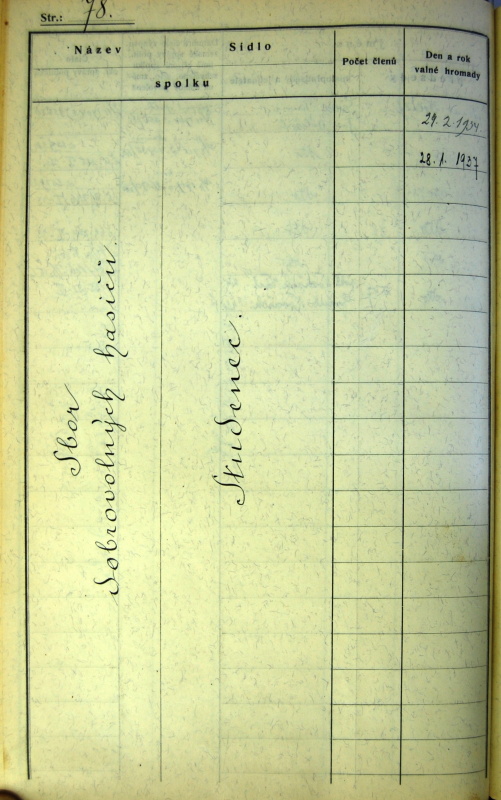 Str.: 78.
Název
Sídlo
spolku
Počet členů
Den a rok
valné hromady
1934
28. 1. 1937
Sbor
dobrovolných hasičů.
Studenec.